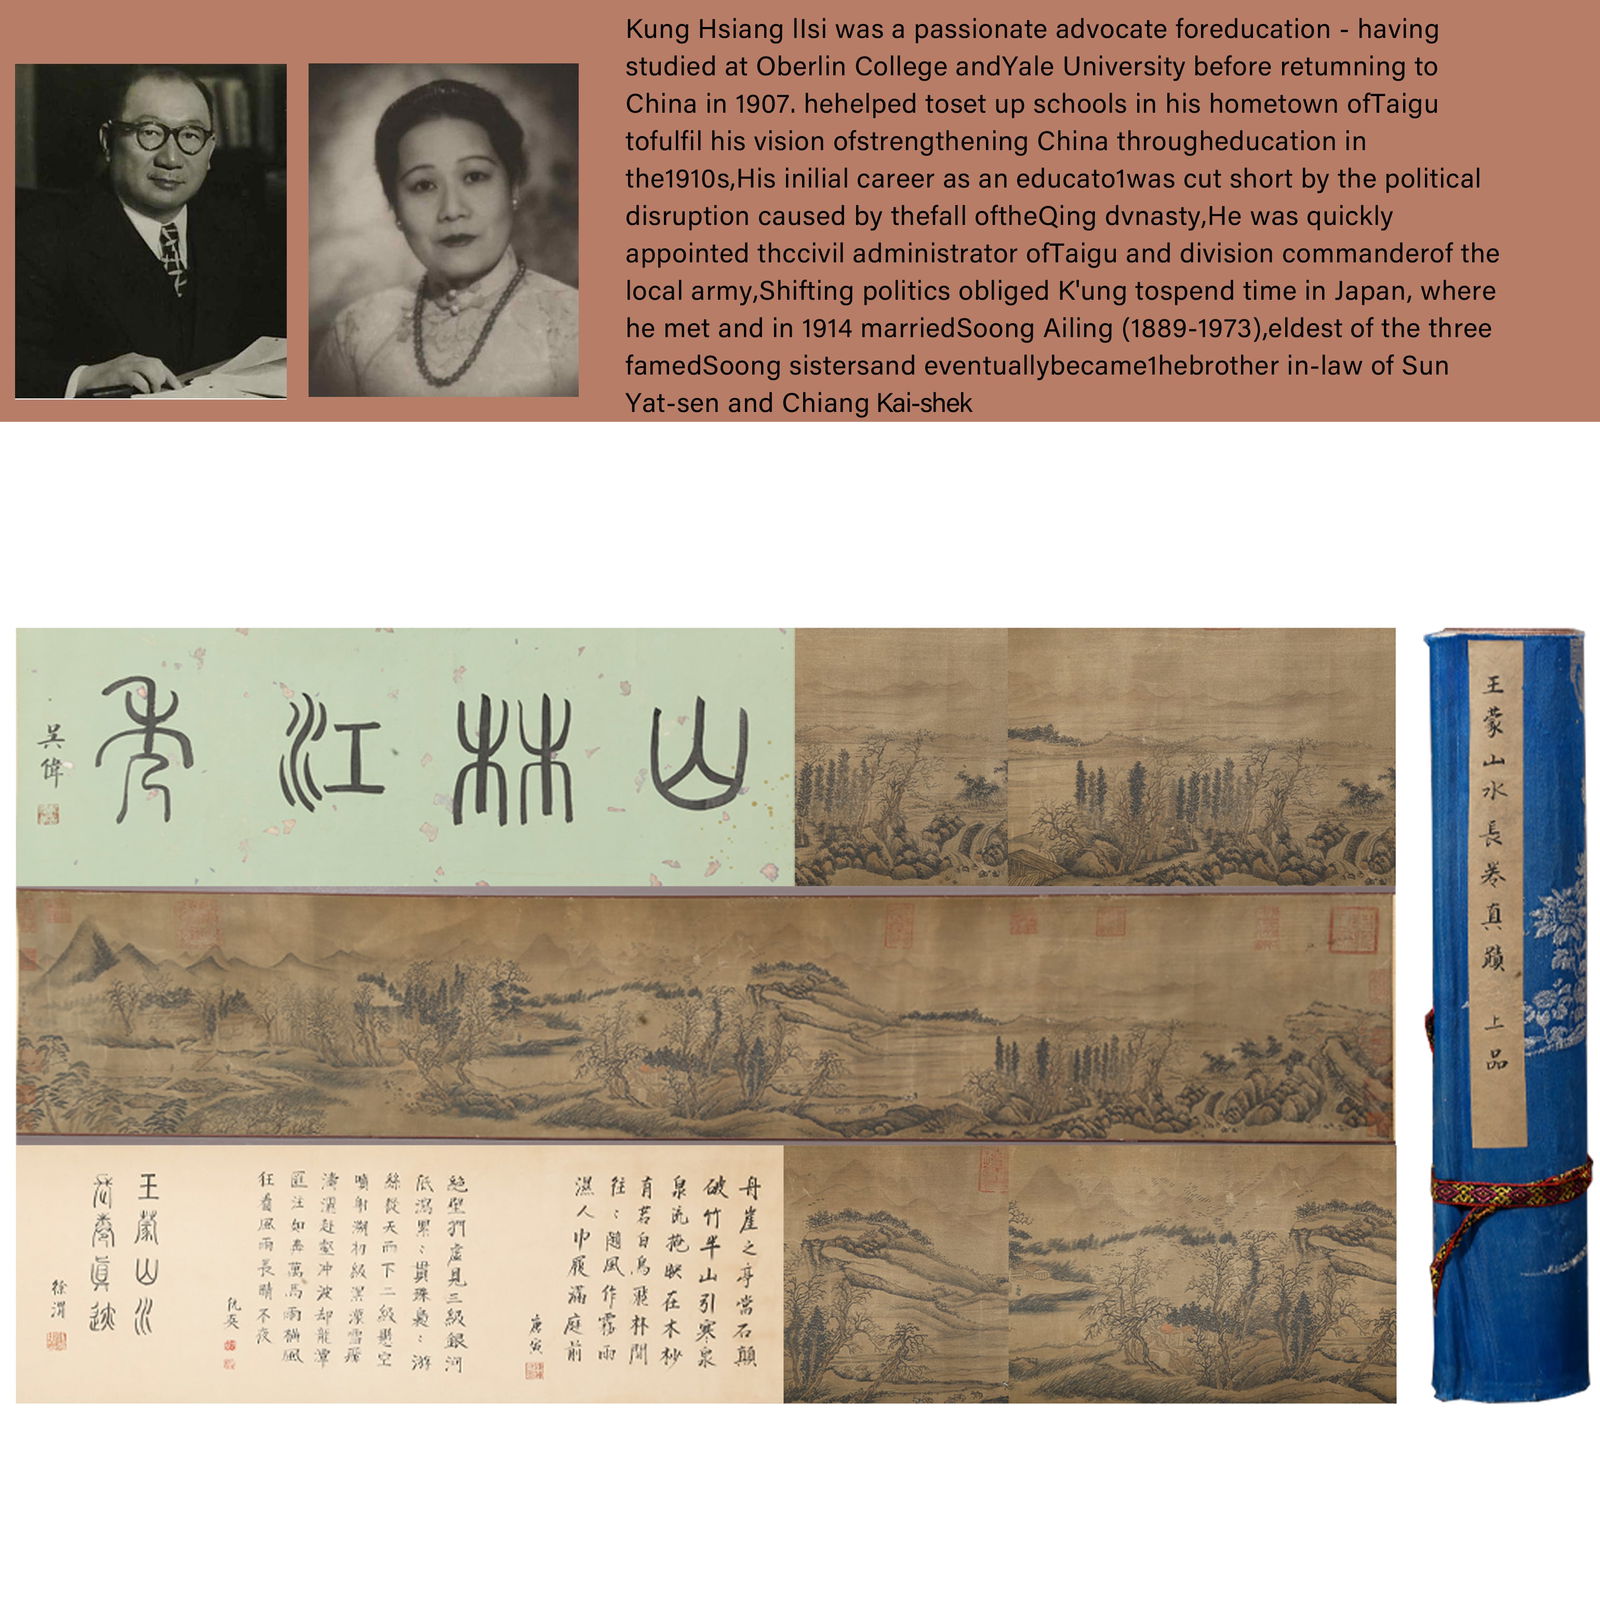 Kung Hsiang lIsi was a passionate advocate foreducation - having
studied at Oberlin College andYale University before retumning to
China in 1907. hehelped toset up schools in his hometown ofTaigu
tofulfil his vision ofstrengthening China througheducation in
the1910s,His inilial career as an educato1was cut short by the political
disruption caused by thefall oftheQing dvnasty,He was quickly
appointed thccivil administrator ofTaigu and division commanderof the
local army,Shifting politics obliged K'ung tospend time in Japan, where
he met and in 1914 marriedSoong Ailing (1889-1973),eldest of the three
famedSoong sistersand eventuallybecame1hebrother in-law of Sun
Yat-sen and Chiang Kai-shek
山林江秀
吳偉
王蒙山水長卷真蹟 上品
丹崖之亭當石顛
破竹半山引寒泉
泉流掩映在木杪
有若白鳥飛林間
往:隨風作霧雨
濕人巾履滿庭前
唐寅
絕壁門虛見三級銀河
低瀉累:貫珠裊:游
絲從天而下二級懸空
噴射瀨初級潔濛雪舞
濤濺赴壑冲波却龍潭
匯注如奔萬馬雨橫風
狂看風雨長晴不夜
仇英
王蒙山水
長卷真迹
徐渭